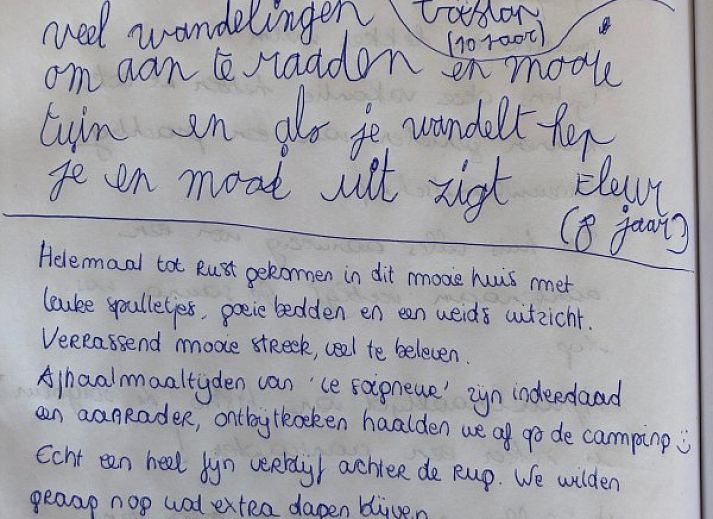 veel wandelingen
Tristan
(10 jaar)
om aan te raaden en mooie
tuin en als je wandelt hep
je en mooi uit zigt Fleur
(8 jaar)
Helemaal tot rust gekomen in dit mooie huis met
leuke spulletjes, goeie bedden en een weids uitzicht.
Verrassend mooie streek, veel te beleven.
Afhaalmaaltijden van 'Le Soigneur' zijn inderdaad
een aanrader, ontbijtkoeken haalden we af op de camping :)
Echt een heel fijn verblijf achter de rug. We wilden
graag nog wat extra dagen blijven